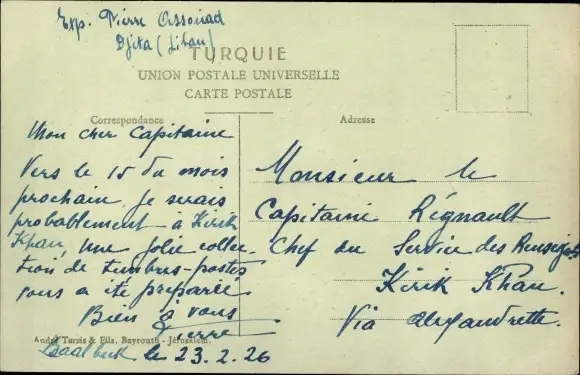 Exp. Pierre Assouad
Djita (Liban)
TURQUIE
UNION POSTALE UNIVERSELLE
CARTE POSTALE
Correspondance
Adresse
Mon cher Capitaine
Vers le 15 du mois
prochain, je serais
probablement à Kirik
Khan, Une jolie collec-
tion de timbres-postes
vous a été préparée
Bien à vous
Pierre
Baalbeck le 23.2.26
Monsieur le
Capitaine Régnault
Chef du Service des Renseignts
Kirik Khan.
Via Alexandrette.
André Terzis & Fils, Beyrouth - Jérusalem.